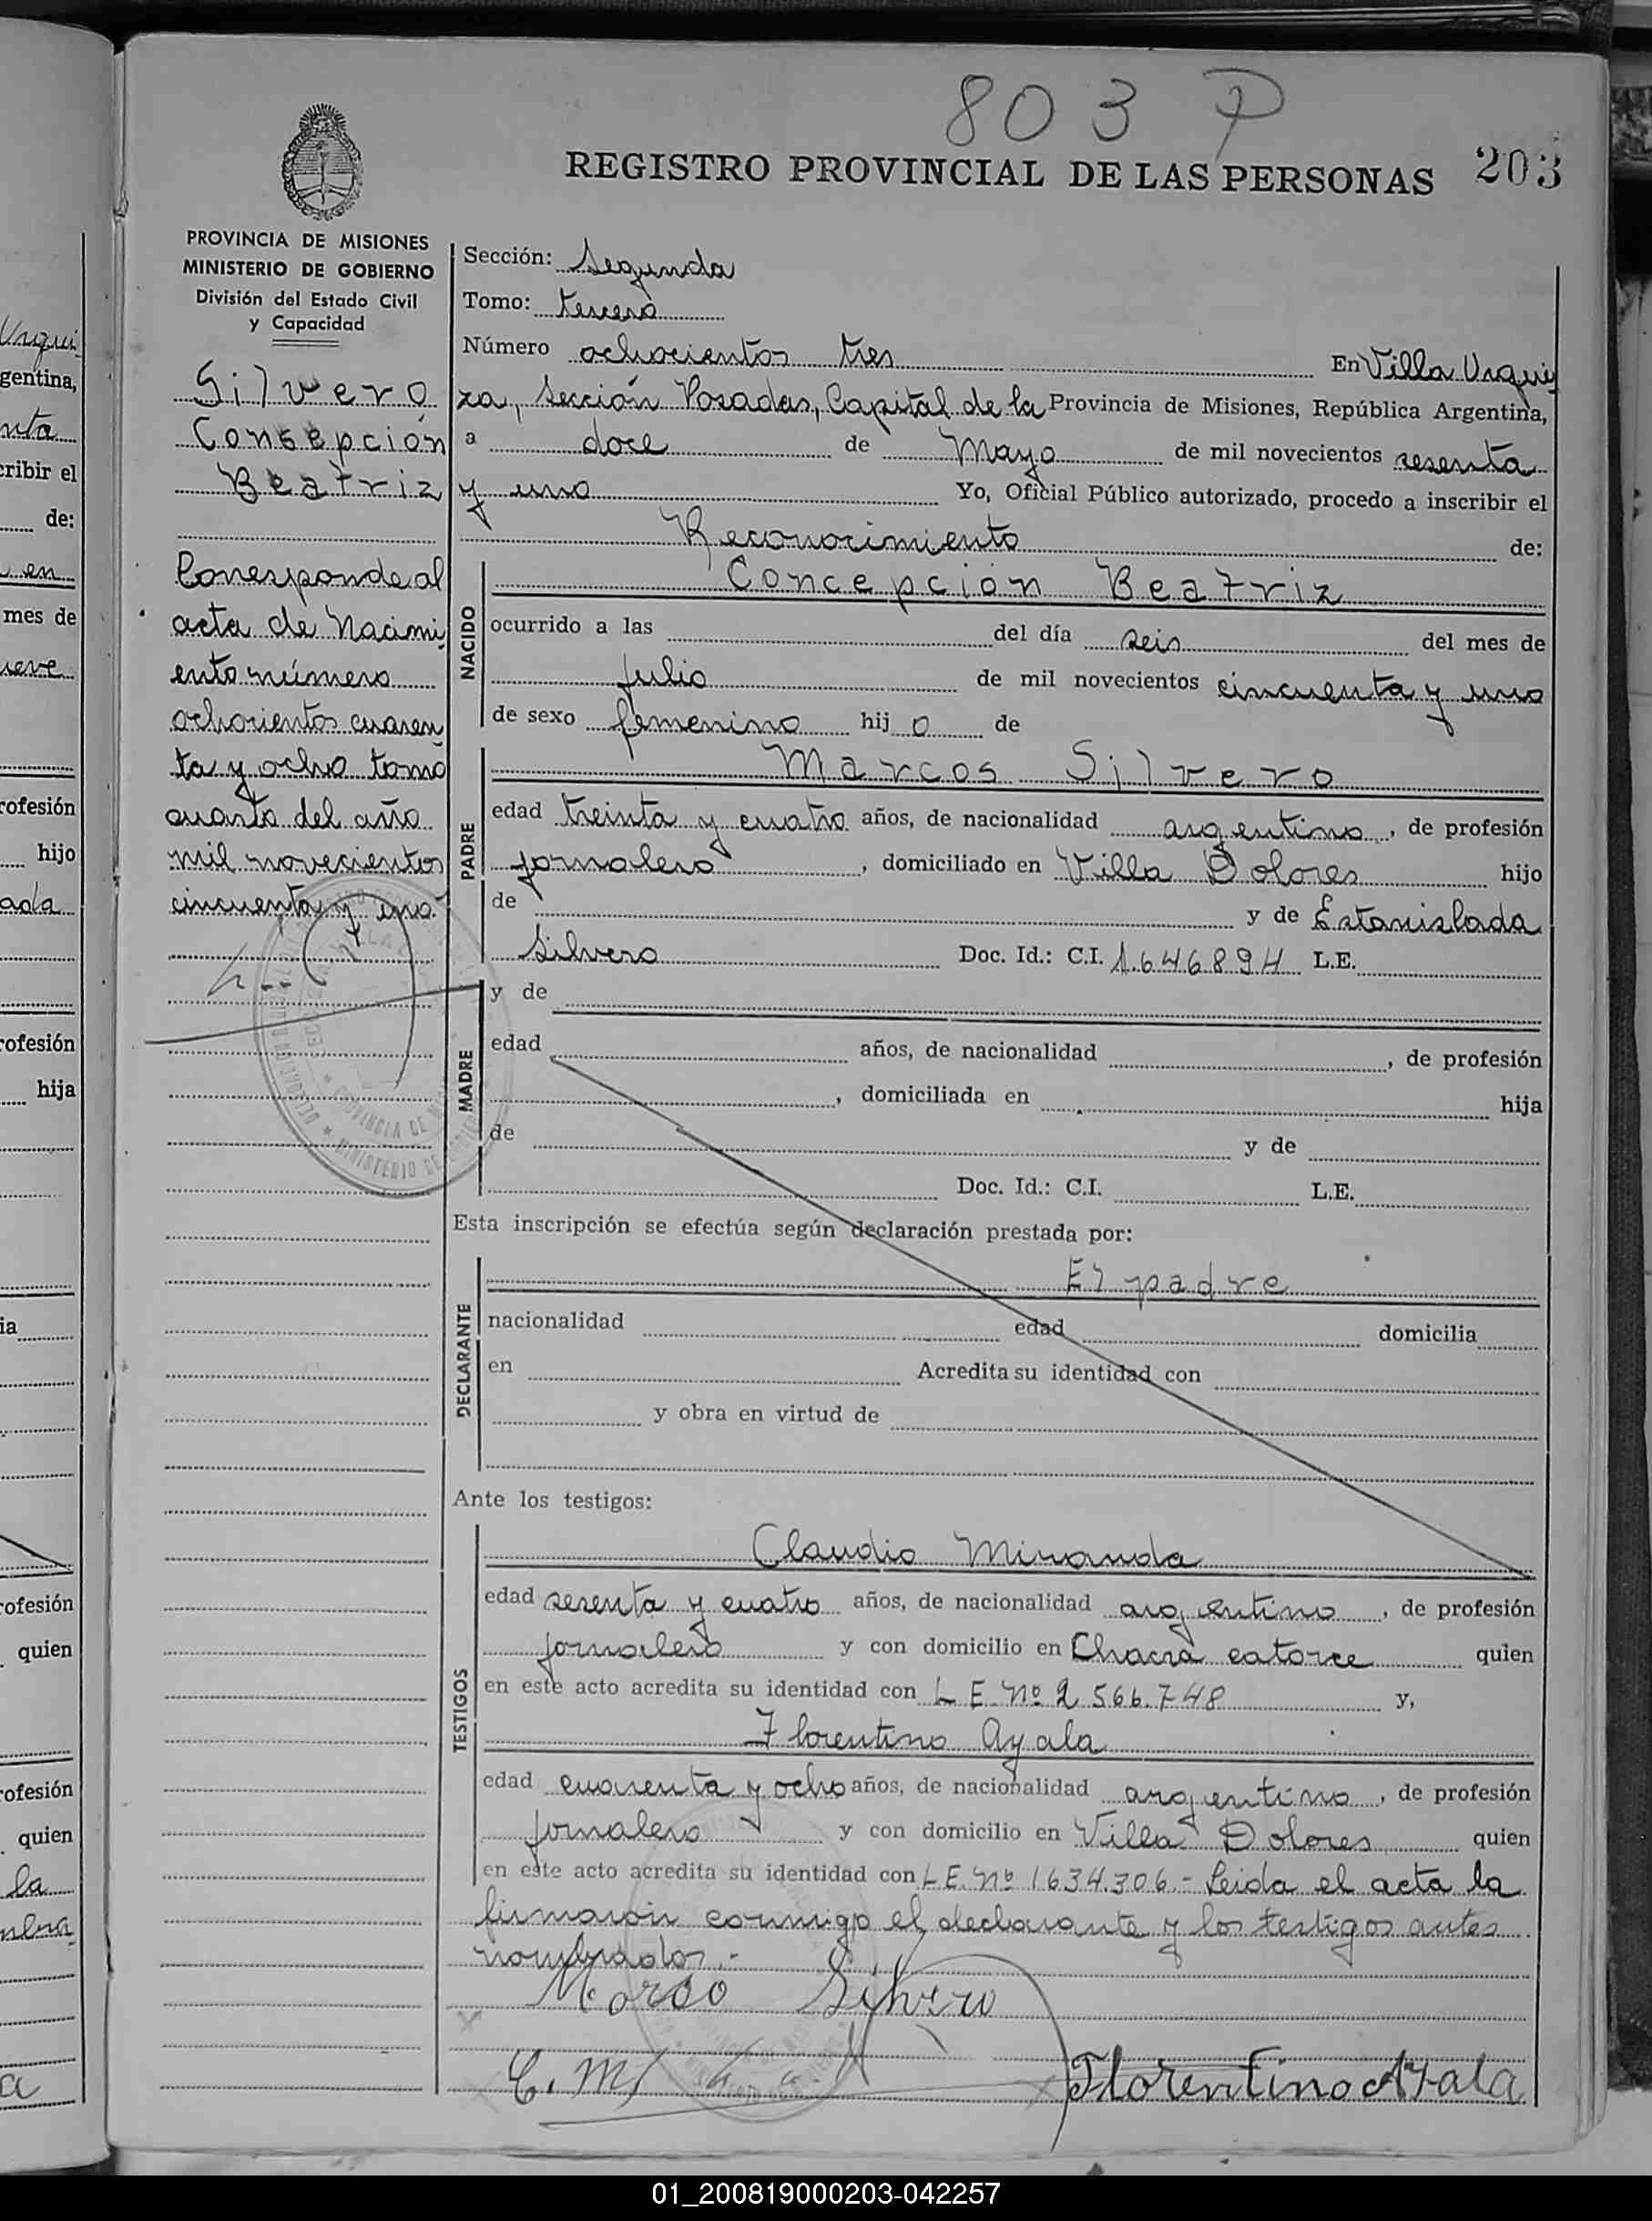 803 P
REGISTRO PROVINCIAL DE LAS PERSONAS 203
PROVINCIA DE MISIONES
MINISTERIO DE GOBIERNO
División del Estado Civil
y Capacidad
Silvero
Consepción
Beatriz
Corresponde al
acta de Nacimi
ento número
ochocientos cuaren
ta y ocho tomo
cuarto del año
mil novecientos
cincuenta y uno
Sección: Segunda
Tomo: tercero
Número ochocientos tres En Villa Urqui
za, Sección Posadas, Capital de la Provincia de Misiones, República Argentina,
a doce de Mayo de mil novecientos sesenta
y uno Yo, Oficial Público autorizado, procedo a inscribir el
Reconocimiento de:
NACIDO
Concepción Beatriz
ocurrido a las del día seis del mes de
Julio de mil novecientos cincuenta y uno
de sexo femenino hij o de
PADRE
Marcos Silvero
edad treinta y cuatro años, de nacionalidad argentino, de profesión
jornalero, domiciliado en Villa Dolores hijo
de y de Estanislada
Silvero Doc. Id.: C.I. 1.646894 L.E.
MADRE
y de
edad años, de nacionalidad , de profesión
, domiciliada en hija
de y de
Doc. Id.: C.I. L.E.
Esta inscripción se efectúa según declaración prestada por:
DECLARANTE
El padre
nacionalidad edad domicilia
en Acredita su identidad con
y obra en virtud de
Ante los testigos:
TESTIGOS
Claudio Miranda
edad sesenta y cuatro años, de nacionalidad argentino, de profesión
jornalero y con domicilio en Chacra catorce quien
en este acto acredita su identidad con L E. Nº 2 566.748 y,
Florentino Ayala
edad cuarenta y ocho años, de nacionalidad argentino, de profesión
jornalero y con domicilio en Villa Dolores quien
en este acto acredita su identidad con L E. Nº 1634.306.- Leida el acta la
firmaron conmigo el declarante y los testigos antes
nombrados.-
Marco Silvero
C. M
Florentino Ayala
01_200819000203-042257